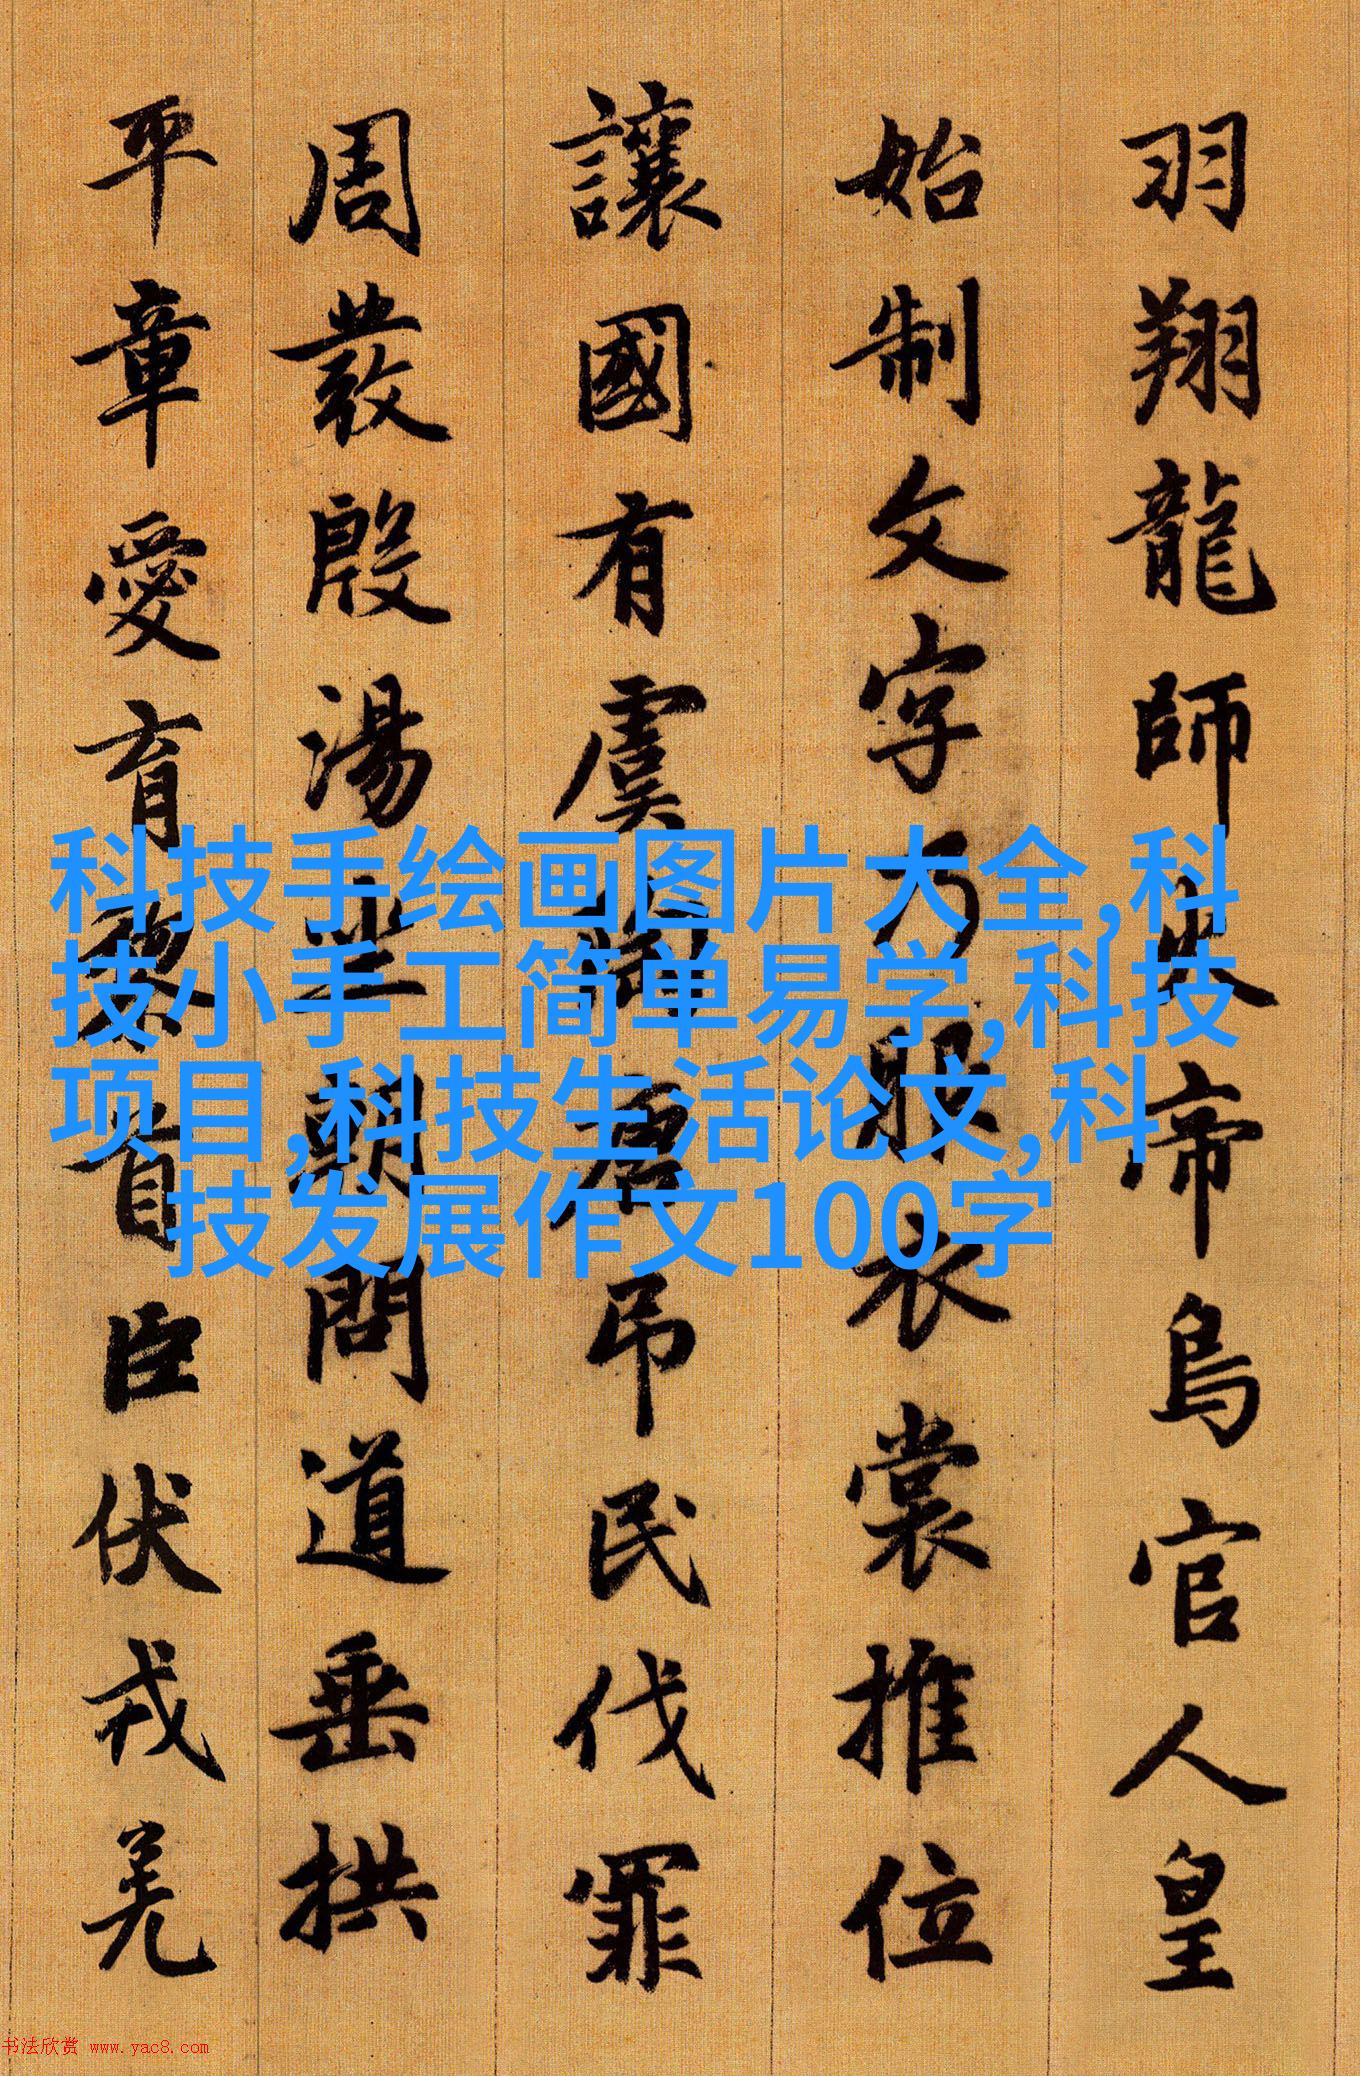 羽翔龍師火帝鳥官人皇
始制文字乃服衣裳推位
讓國有虞陶唐吊民伐罪
周發殷湯坐朝問道垂拱
平章愛育黎首臣伏戎羌
科技手绘画图片大全,科
技小手工简单易学,科技
项目,科技生活论文,科
技发展作文100字
书法欣赏 www.yac8.com